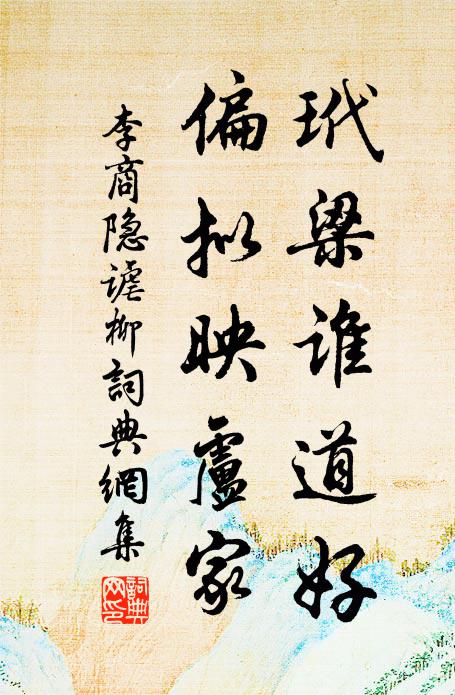 玳梁谁道好
偏拟映盧家
李商隐谑柳詞典網集
詞典网印